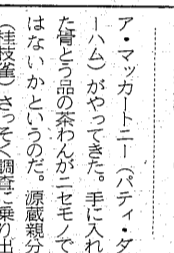 ア・マッカートニー（パティ・ダ
ーハム）がやってきた。手に入れ
た骨とう品の茶わんがニセモノで
はないかというのだ。源蔵親分
（桂枝雀）さっそく調査に乗り出